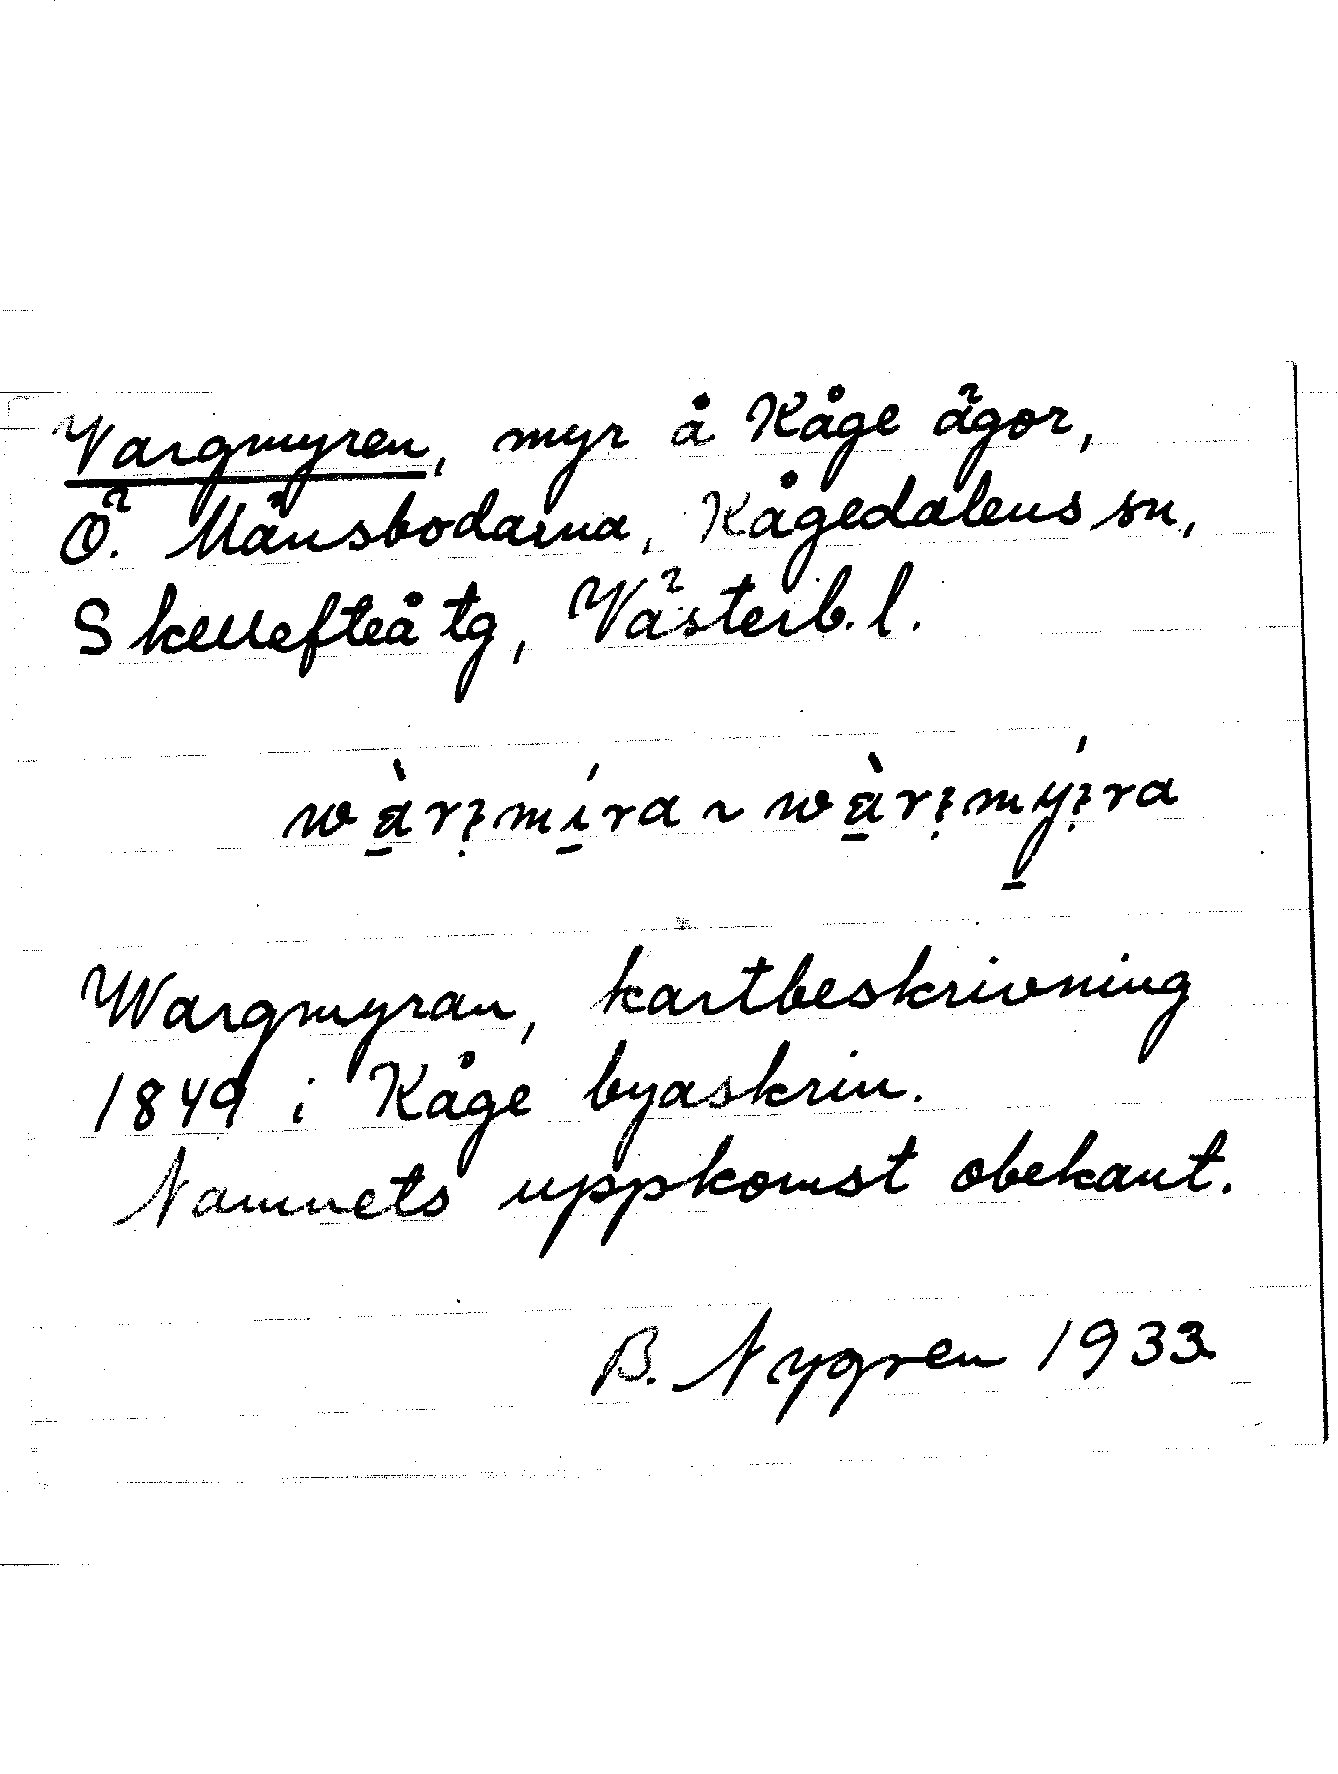 Vargmyren, myr å Kåge ägor,
Ö. Månsbodarna, Kågedalens sn,
Skellefteå tg, Västerb. l.
Wargmyran, kartbeskrivning
1849 i Kåge byaskrin.
Namnets uppkomst obekant.
B. Nygren 1933